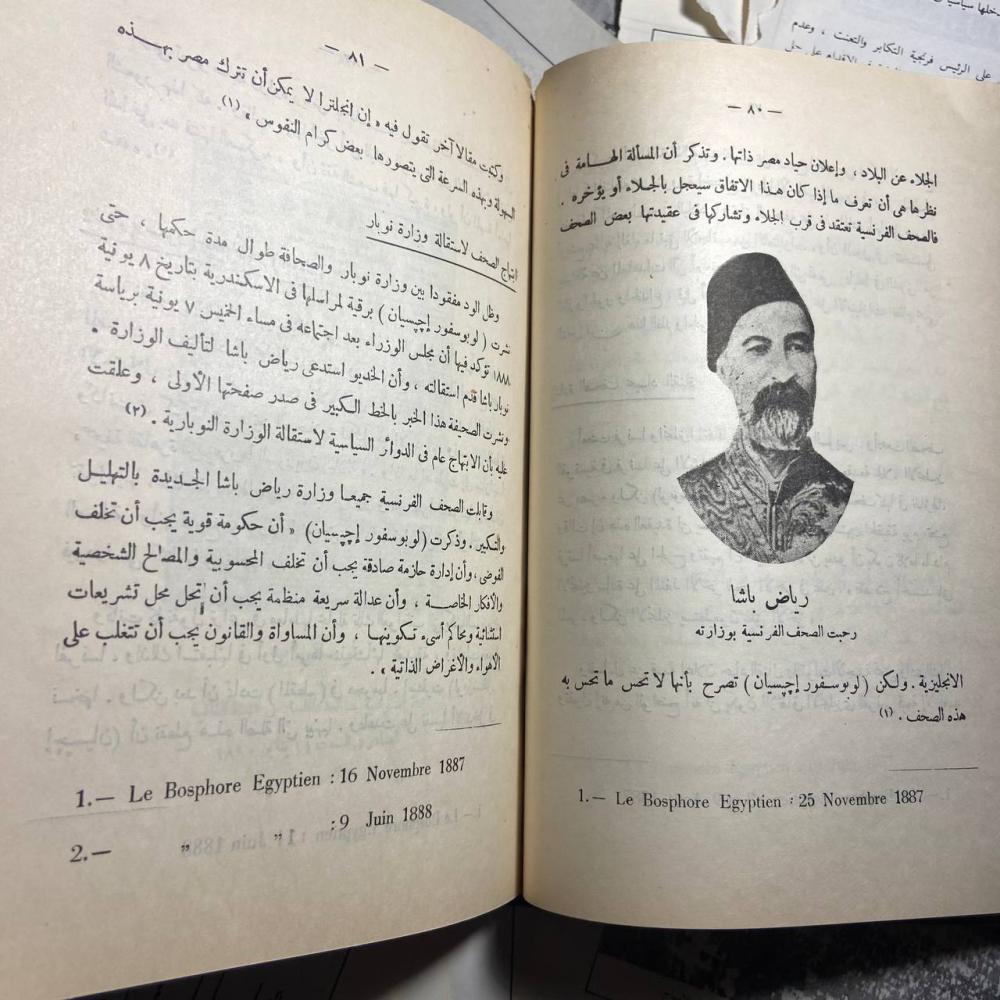 — ٨٠ —
الجلاء عن البلاد ، وإعلان حياد مصر ذاتها . وتذكر أن المسألة الهامة فى
نظرها هى أن تعرف ما إذا كان هذا الاتفاق سيعجل بالجلاء أو يؤخره .
فالصحف الفرنسية تعتقد فى قرب الجلاء وتشاركها فى عقيدتها بعض الصحف
رياض باشا
رحبت الصحف الفرنسية بوزارته
الانجليزية . ولكن ( لوبوسفور إچپسيان ) تصرح بأنها لا تحس ما تحس به
هذه الصحف . (١)
1.— Le Bosphore Egyptien : 25 Novembre 1887
— ٨١ —
وكتبت مقالا آخر تقول فيه « إن انجلترا لا يمكن أن تترك مصر بهذه
السهولة وبهذه السرعة التى يتصورها بعض كرام النفوس » (١)
ابتهاج الصحف لاستقالة وزارة نوبار
وظل الود مفقودا بين وزارة نوبار والصحافة طوال مدة حكمها ، حتى
نشرت ( لوبوسفور إچپسيان ) برقية لمراسلها فى الاسكندرية بتاريخ ٨ يونية
١٨٨٨ تؤكد فيها أن مجلس الوزراء بعد اجتماعه فى مساء الخميس ٧ يونية برياسة
نوبار باشا قدم استقالته ، وأن الخديو استدعى رياض باشا لتأليف الوزارة .
ونشرت الصحيفة هذا الخبر بالخط الكبير فى صدر صفحتها الأولى ، وعلقت
عليه بأن الابتهاج عام فى الدوائر السياسية لاستقالة الوزارة النوبارية . (٢)
وقابلت الصحف الفرنسية جميعا وزارة رياض باشا الجديدة بالتهليل
والتكبير . وذكرت ( لوبوسفور إچپسيان ) « أن حكومة قوية يجب أن تخلف
الفوضى ، وأن إدارة حازمة صادقة يجب أن تخلف المحسوبية والمصالح الشخصية
والأفكار الخاصة ، وأن عدالة سريعة منظمة يجب أن تحل محل تشريعات
استثنائية ومحاكم أسىء تكوينها ، وأن المساواة والقانون يجب أن تتغلب على
الاهواء والأغراض الذاتية » .
1.— Le Bosphore Egyptien : 16 Novembre 1887
2.— „ „ : 9 Juin 1888
على الرئيس فرنجية التكابر والتعنت ، وعدم